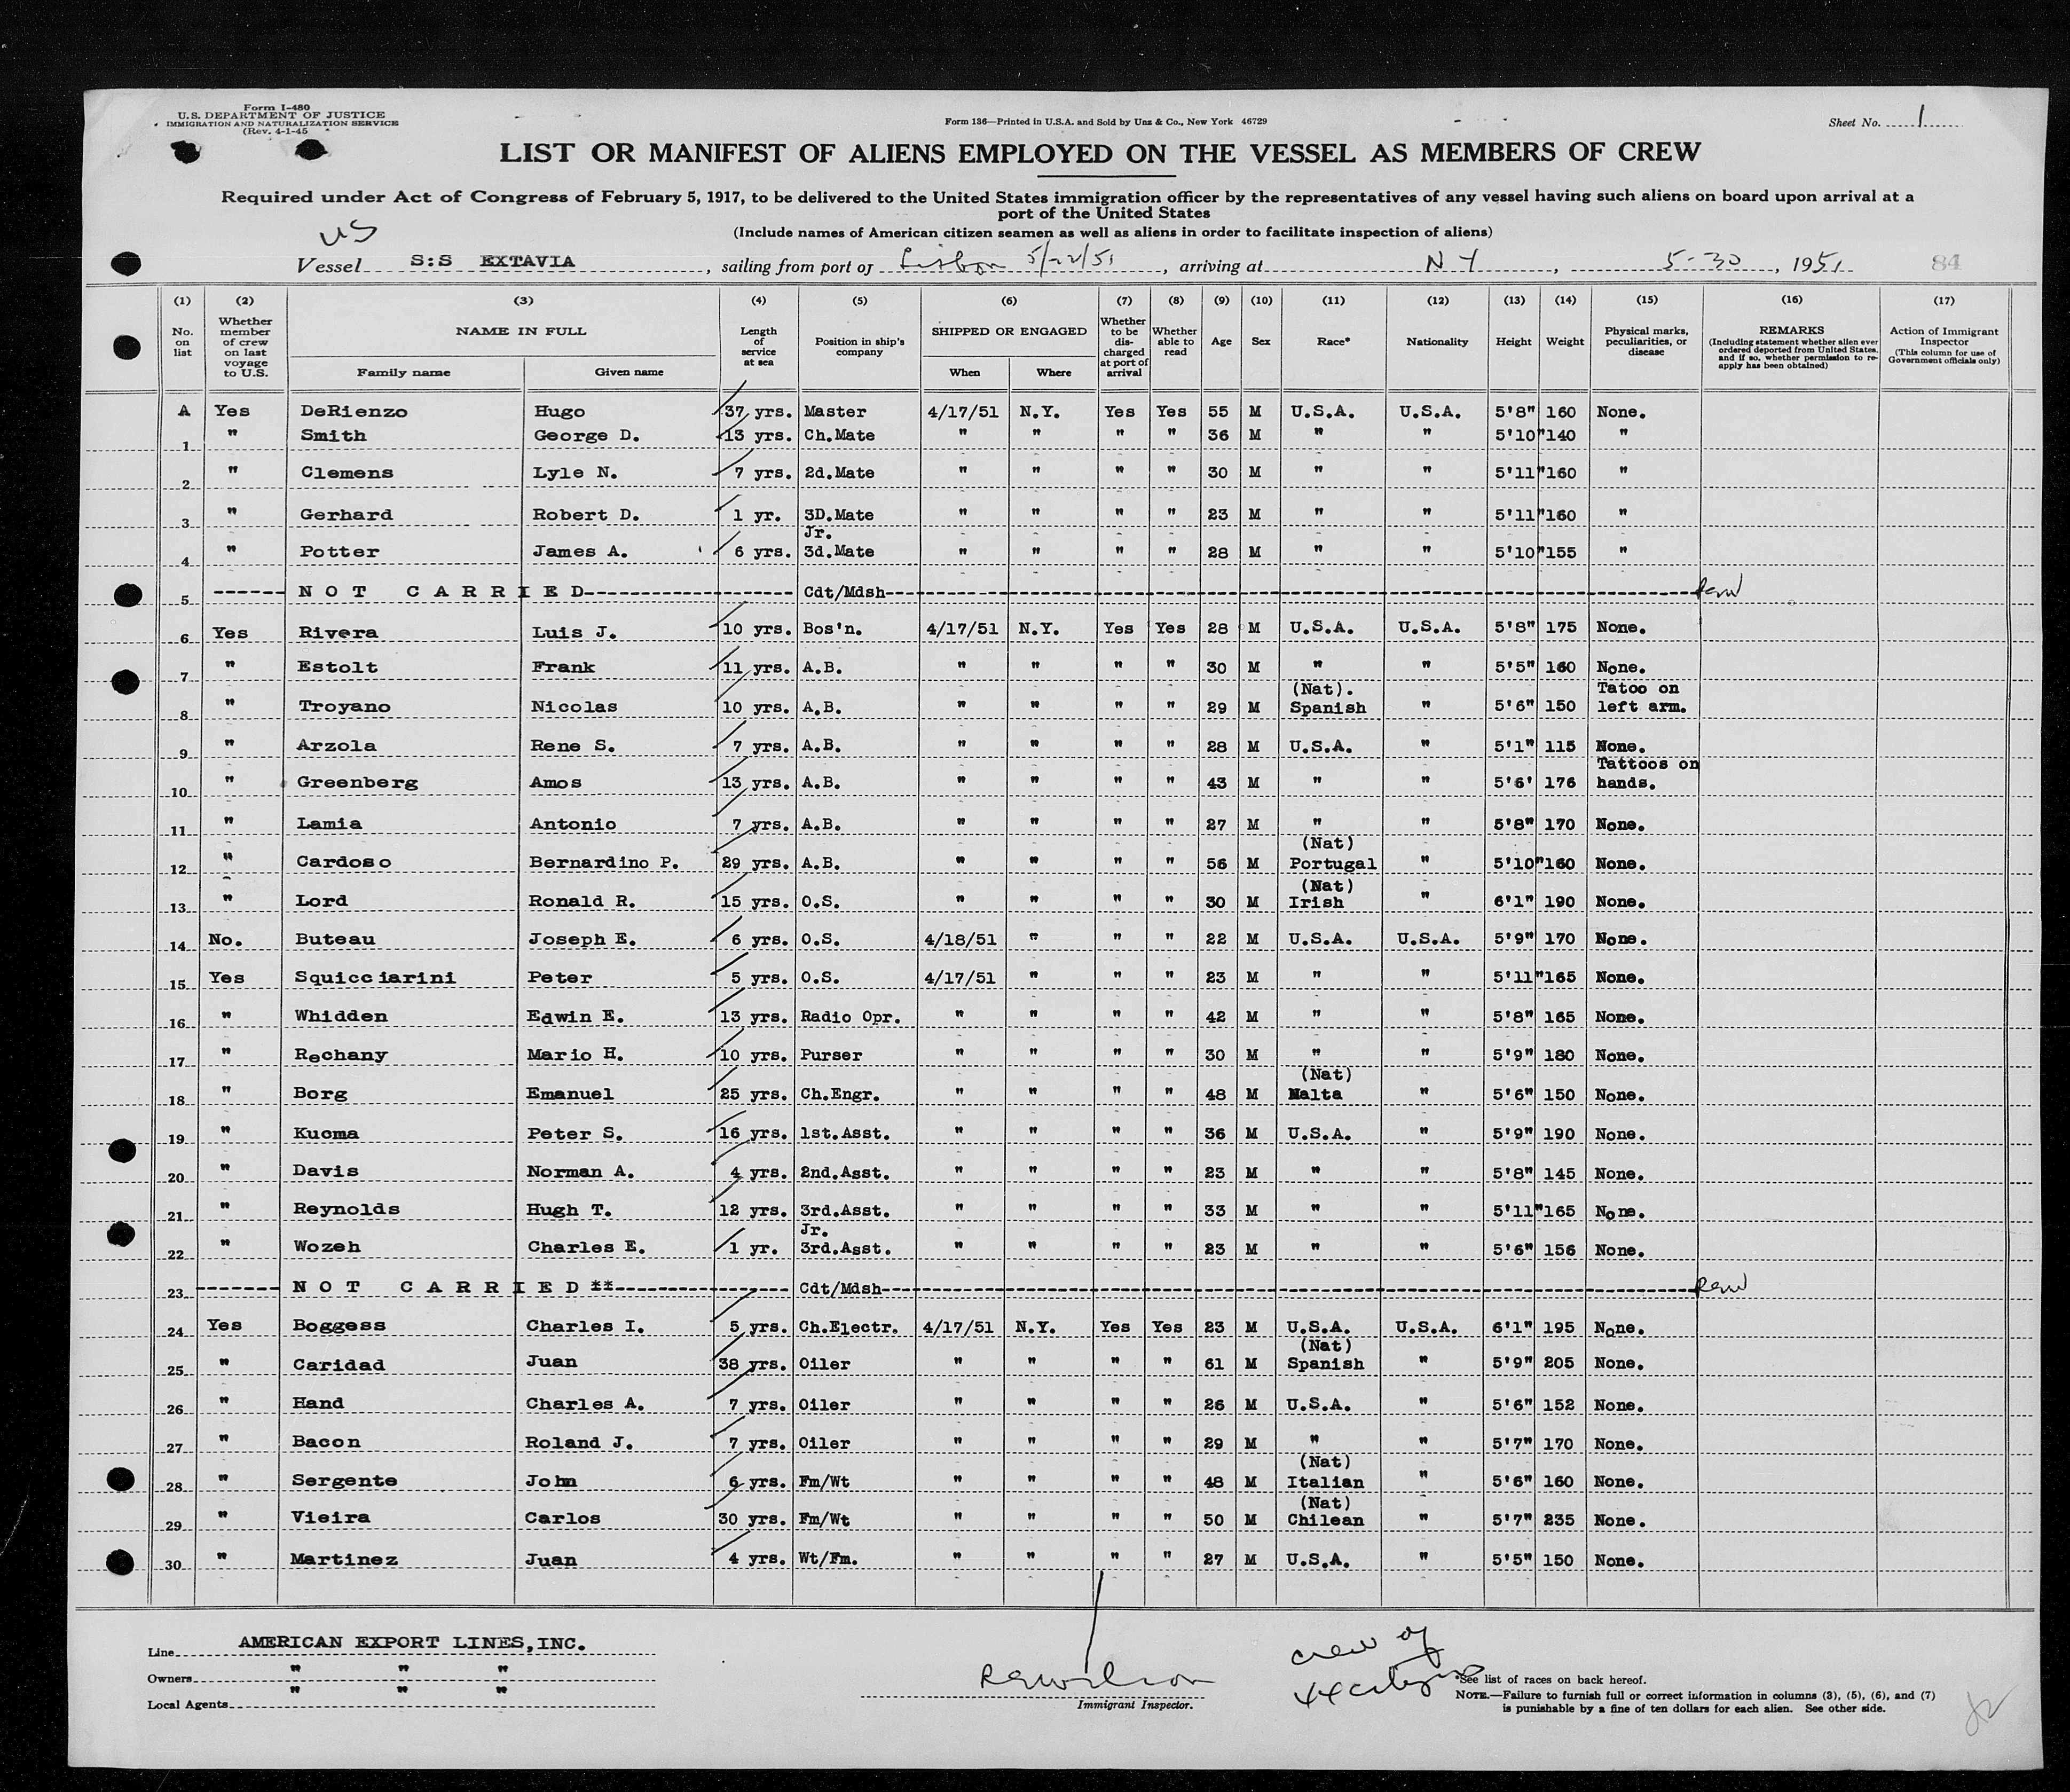 Form I-480
U.S. DEPARTMENT OF JUSTICE
IMMIGRATION AND NATURALIZATION SERVICE
(Rev. 4-1-45
Form 136—Printed in U.S.A. and Sold by Unz & Co., New York 46729
Sheet No. 1
LIST OR MANIFEST OF ALIENS EMPLOYED ON THE VESSEL AS MEMBERS OF CREW
Required under Act of Congress of February 5, 1917, to be delivered to the United States immigration officer by the representatives of any vessel having such aliens on board upon arrival at a
port of the United States
(Include names of American citizen seamen as well as aliens in order to facilitate inspection of aliens)
US
Vessel S:S EXTAVIA, sailing from port of Lisbon 5/22/51, arriving at N Y, 5-30, 1951 84
(1) No. on list (2) Whether member of crew on last voyage to U.S. (3) NAME IN FULL Family name Given name (4) Length of service at sea (5) Position in ship's company (6) SHIPPED OR ENGAGED When Where (7) Whether to be discharged at port of arrival (8) Whether able to read (9) Age (10) Sex (11) Race* (12) Nationality (13) Height (14) Weight (15) Physical marks, peculiarities, or disease (16) REMARKS (Including statement whether alien ever ordered deported from United States, and if so, whether permission to reapply has been obtained) (17) Action of Immigrant Inspector (This column for use of Government officials only)
A Yes DeRienzo Hugo 37 yrs. Master 4/17/51 N.Y. Yes Yes 55 M U.S.A. U.S.A. 5'8" 160 None.
1 " Smith George D. 13 yrs. Ch.Mate " " " " 36 M " " 5'10" 140 "
2 " Clemens Lyle N. 7 yrs. 2d.Mate " " " " 30 M " " 5'11" 160 "
3 " Gerhard Robert D. 1 yr. 3D.Mate " " " " 23 M " " 5'11" 160 "
4 " Potter James A. 6 yrs. Jr. 3d.Mate " " " " 28 M " " 5'10" 155 "
5 ------ N O T C A R R I E D ------ Cdt/Mdsh ------ Rew
6 Yes Rivera Luis J. 10 yrs. Bos'n. 4/17/51 N.Y. Yes Yes 28 M U.S.A. U.S.A. 5'8" 175 None.
7 " Estolt Frank 11 yrs. A.B. " " " " 30 M " " 5'5" 160 None.
8 " Troyano Nicolas 10 yrs. A.B. " " " " 29 M (Nat). Spanish " 5'6" 150 Tatoo on left arm.
9 " Arzola Rene S. 7 yrs. A.B. " " " " 28 M U.S.A. " 5'1" 115 None.
10 " Greenberg Amos 13 yrs. A.B. " " " " 43 M " " 5'6' 176 Tattoos on hands.
11 " Lamia Antonio 7 yrs. A.B. " " " " 27 M " " 5'8" 170 None.
12 " Cardoso Bernardino P. 29 yrs. A.B. " " " " 56 M (Nat) Portugal " 5'10" 160 None.
13 " Lord Ronald R. 15 yrs. O.S. " " " " 30 M (Nat) Irish " 6'1" 190 None.
14 No. Buteau Joseph E. 6 yrs. O.S. 4/18/51 " " " 22 M U.S.A. U.S.A. 5'9" 170 None.
15 Yes Squicciarini Peter 5 yrs. O.S. 4/17/51 " " " 23 M " " 5'11" 165 None.
16 " Whidden Edwin E. 13 yrs. Radio Opr. " " " " 42 M " " 5'8" 165 None.
17 " Rechany Mario H. 10 yrs. Purser " " " " 30 M " " 5'9" 180 None.
18 " Borg Emanuel 25 yrs. Ch.Engr. " " " " 48 M (Nat) Malta " 5'6" 150 None.
19 " Kucma Peter S. 16 yrs. 1st.Asst. " " " " 36 M U.S.A. " 5'9" 190 None.
20 " Davis Norman A. 4 yrs. 2nd.Asst. " " " " 23 M " " 5'8" 145 None.
21 " Reynolds Hugh T. 12 yrs. 3rd.Asst. " " " " 33 M " " 5'11" 165 None.
22 " Wozeh Charles E. 1 yr. Jr. 3rd.Asst. " " " " 23 M " " 5'6" 156 None.
23 ------ N O T C A R R I E D ** ------ Cdt/Mdsh ------ Rew
24 Yes Boggess Charles I. 5 yrs. Ch.Electr. 4/17/51 N.Y. Yes Yes 23 M U.S.A. U.S.A. 6'1" 195 None.
25 " Caridad Juan 38 yrs. Oiler " " " " 61 M (Nat) Spanish " 5'9" 205 None.
26 " Hand Charles A. 7 yrs. Oiler " " " " 26 M U.S.A. " 5'6" 152 None.
27 " Bacon Roland J. 7 yrs. Oiler " " " " 29 M " " 5'7" 170 None.
28 " Sergente John 6 yrs. Fm/Wt " " " " 48 M (Nat) Italian " 5'6" 160 None.
29 " Vieira Carlos 30 yrs. Fm/Wt " " " " 50 M (Nat) Chilean " 5'7" 235 None.
30 " Martinez Juan 4 yrs. Wt/Fm. " " " " 27 M U.S.A. " 5'5" 150 None.
Line AMERICAN EXPORT LINES,INC.
Owners " " "
Local Agents " " "
REWilson
Immigrant Inspector.
crew of
44 citizens
*See list of races on back hereof.
NOTE.—Failure to furnish full or correct information in columns (3), (5), (6), and (7)
is punishable by a fine of ten dollars for each alien. See other side.